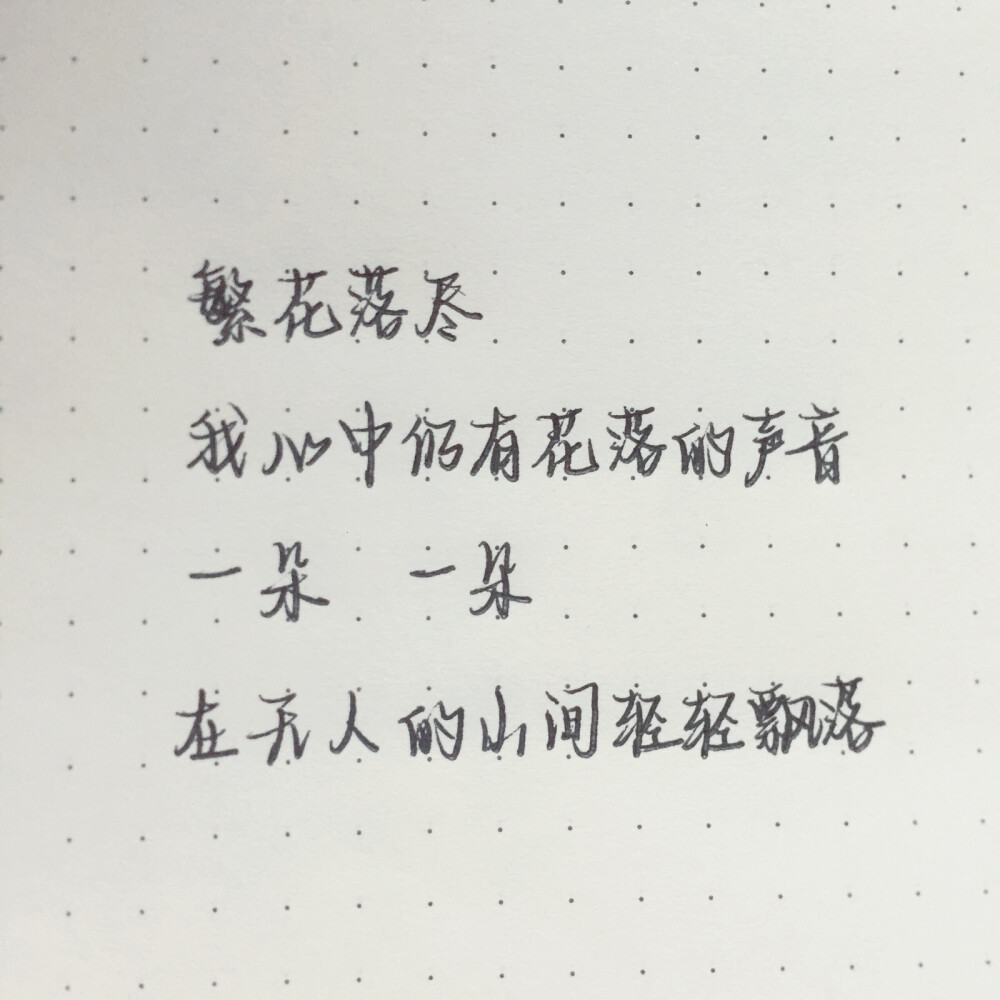 繁花落尽
我心中仍有花落的声音
一朵 一朵
在无人的山间轻轻飘落